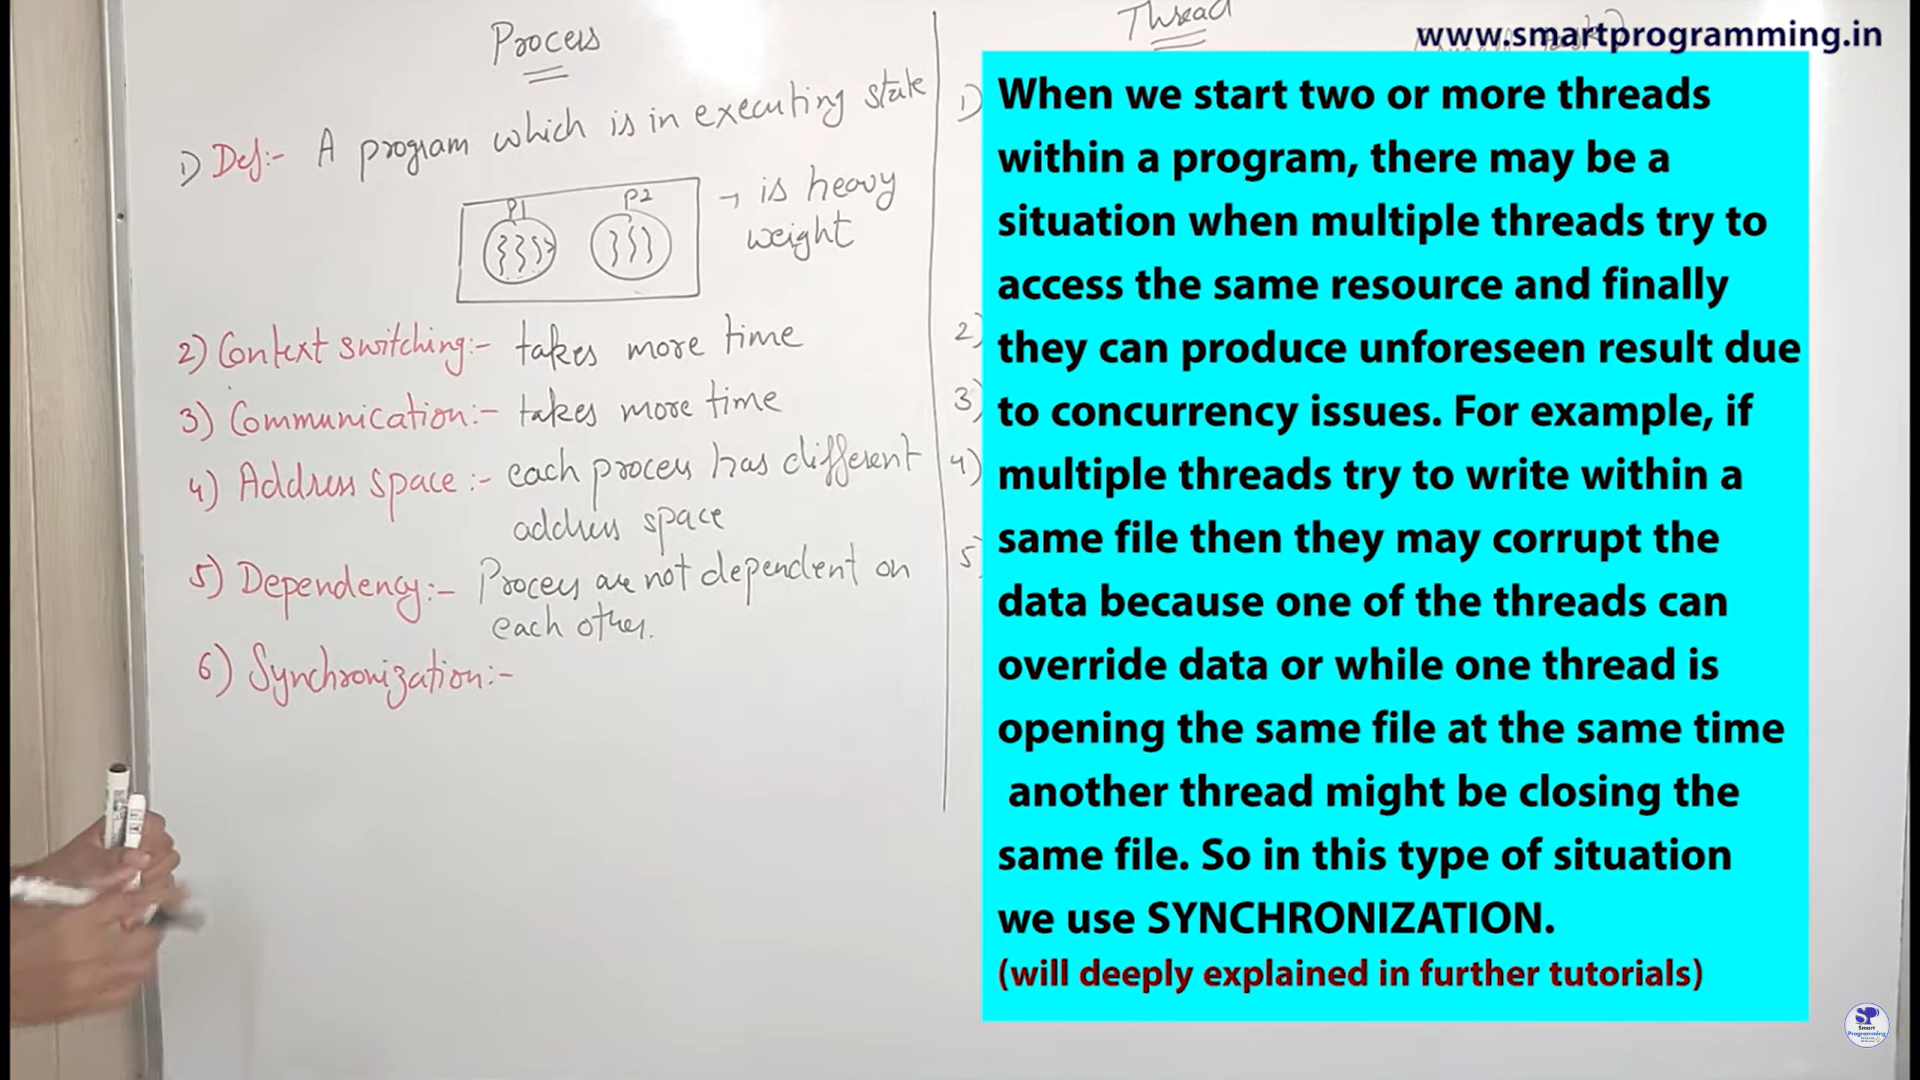 Process
Thread
www.smartprogramming.in
1) Def:- A program which is in executing state
P1
P2
→ is heavy
weight
2) Context switching:- takes more time
3) Communication:- takes more time
4) Address space:- each process has different
address space
5) Dependency:- Process are not dependent on
each other.
6) Synchronization:-
1)
2)
3)
4)
5)
When we start two or more threads
within a program, there may be a
situation when multiple threads try to
access the same resource and finally
they can produce unforeseen result due
to concurrency issues. For example, if
multiple threads try to write within a
same file then they may corrupt the
data because one of the threads can
override data or while one thread is
opening the same file at the same time
another thread might be closing the
same file. So in this type of situation
we use SYNCHRONIZATION.
(will deeply explained in further tutorials)
SP
Smart
Programming